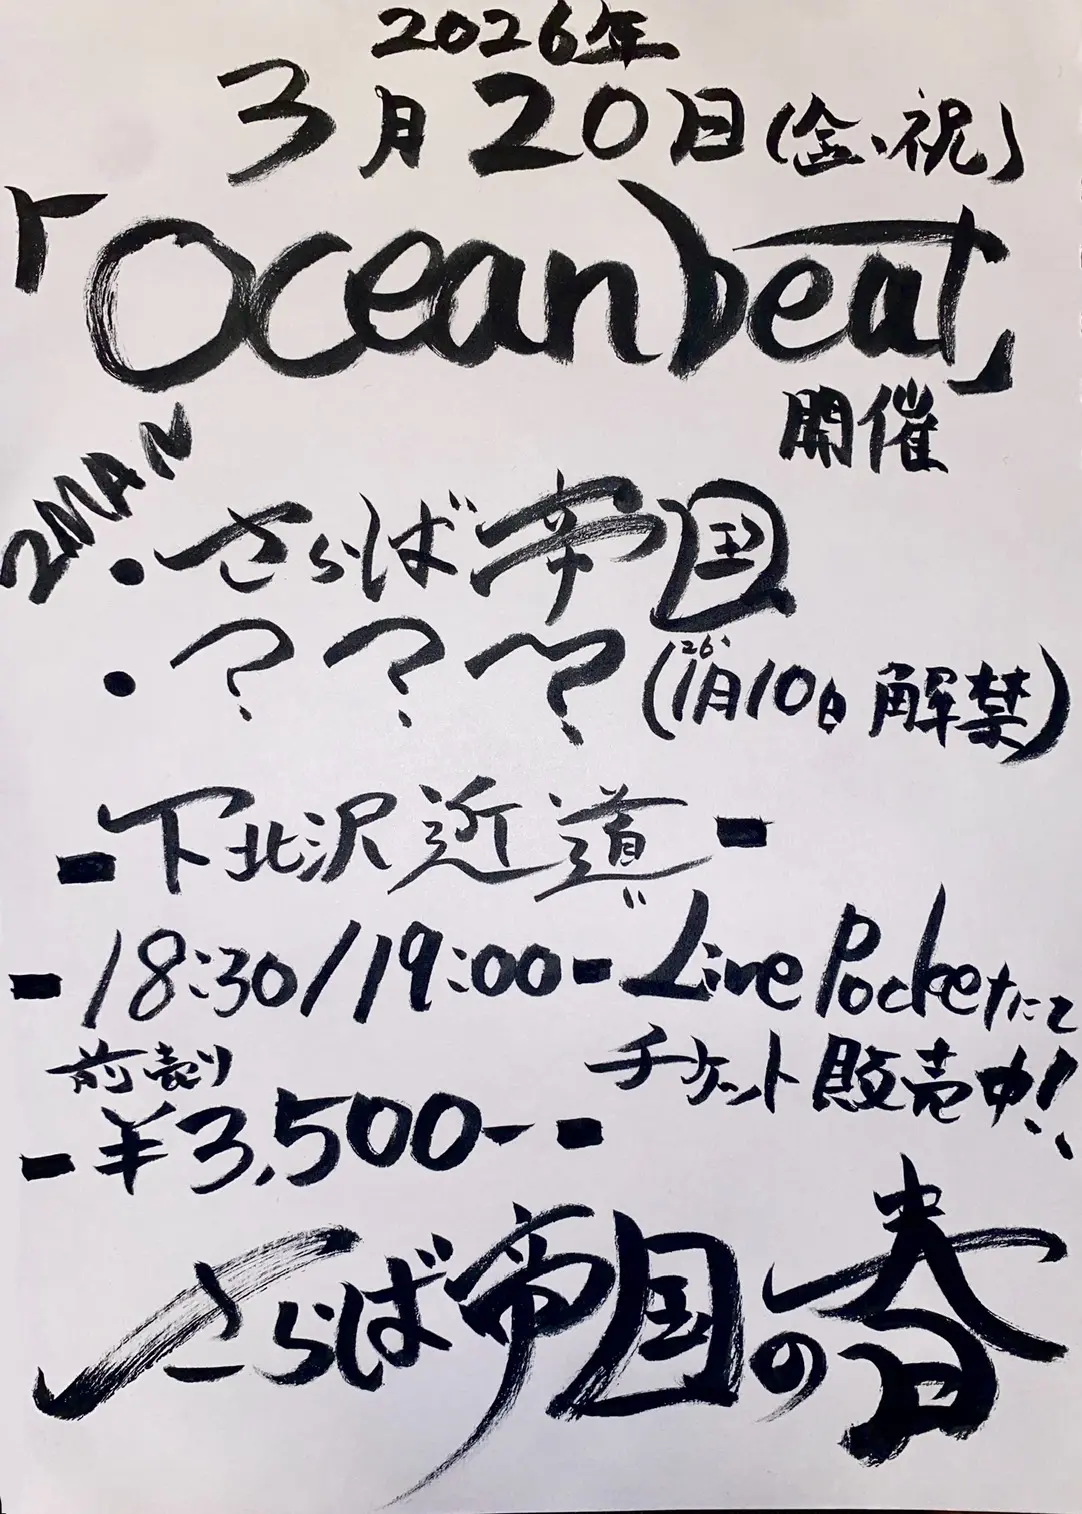 2026年
3月20日(金、祝)
「Oceanbeat」
開催
2MAN
・さらば帝国
・???(26'1月10日解禁)
-下北沢近道-
-18:30/19:00-
Live Pocketにて
チケット販売中!!
前売り
-¥3,500--
さらば帝国の春